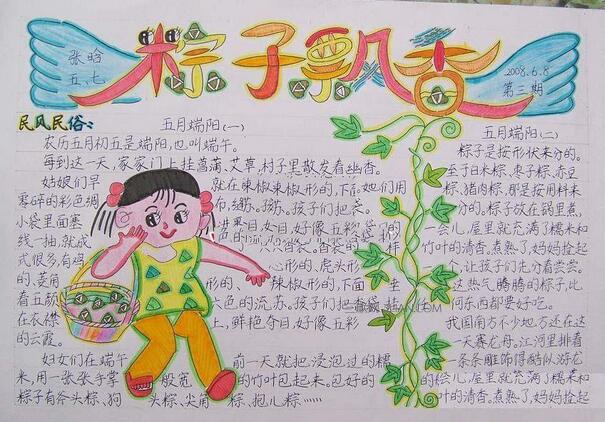 张晗
五、七
粽子飘香
2008.6.8
第三期
民风民俗:
五月端阳(一)
农历五月初五是端阳,也叫端午。
每到这一天,家家门上挂菖蒲、艾草,村子里散发着幽香。
姑娘们早就在辣椒辣椒形的,下面她们用
零碎的彩色绸布,
小袋里面塞
线一抽,就成
式很多,有鸡心形的、虎头形
的、菱角形的、辣椒形的,下面坐
看五颜六色的流苏。孩子们把香袋
在衣襟上,鲜艳夺目,好像五彩
的云霞。
妇女们在端午前一天就把浸泡过的糯
米,用一张张手掌般宽的竹叶包起来。包好的
粽子有斧头粽、狗头粽、尖角粽、抱儿粽
五月端阳(二)
粽子是按形状来分的。
至于白米粽、枣子粽、赤豆
粽、猪肉粽,那是按用料来
分的。粽子放在锅里煮,
一会儿,屋里就充满了糯米和
竹叶的清香。煮熟了,妈妈捡起
个,让孩子们先分着尝尝。
这热气腾腾的粽子,比
问东西都要好吃。
我国南方不少地方还在这
一天赛龙舟。江河里排着
一条条雕饰得酷似游龙
的绘儿,屋里就充满了糯米和
的清香。煮熟了,妈妈捡起